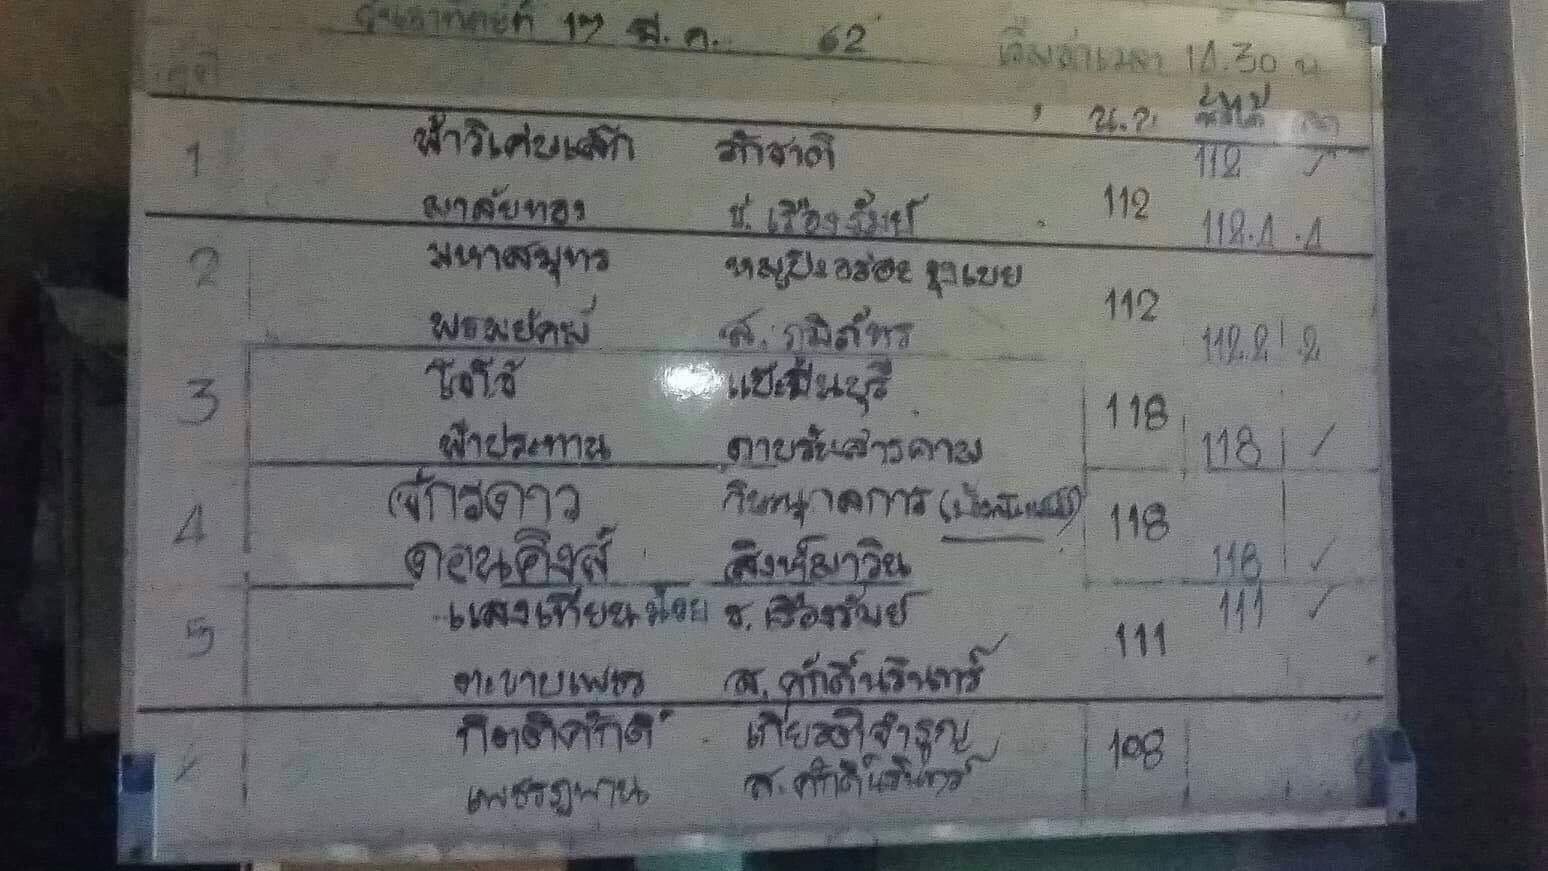 วันอาทิตย์ที่ 17 มี.ค. 62 เริ่มชกเวลา 14.30 น
คู่ที่ น.น. ชั่งได้
1 ศักชาติ 112 ✓
มาลัยทอง ช. เรืองรัมย์ 112 112.1 .1
2 มหาสมุทร หมูปิ้งอร่อยจุงเบย
พรพยัคฆ์ ส. ภูมิภัทร 112 112.2 .2
3 โชโช้ แป๊ะมีนบุรี 118
ฟ้าประทาน ดาบรันสารคาม 118 ✓
4 จักรดาว 118
ดอนคิงส์ สิงห์มาวิน 118 ✓
5 แสงเทียนน้อย ช. เรืองรัมย์ 111 111 ✓
ตะขาบเพชร ส. ศักดิ์นรินทร์
กิตติศักดิ์ เกียรติจำรูญ 108
ส. ศักดิ์นรินทร์